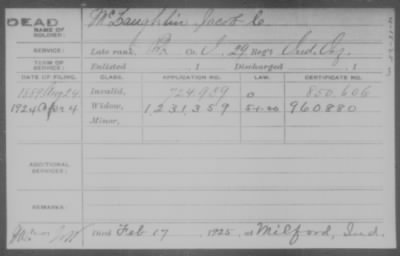 DEAD
NAME OF SOLDIER: McLaughlin Jacob C.
SERVICE: Late rank, Co. I, 29 Reg't Ind. Inf.
TERM OF SERVICE: Enlisted , 1 Discharged , 1
DATE OF FILING. CLASS. APPLICATION NO. LAW. CERTIFICATE NO.
1889 Aug 24 Invalid, 724,939 850,606
1924 Apr 4 Widow, 1,231,359 5-1-20 960880
Minor,
ADDITIONAL SERVICES:
REMARKS:
Died Feb 17, 1925, at Milford, Ind.